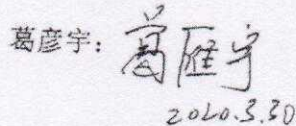 葛彦宇：葛雁宇
2020.3.30